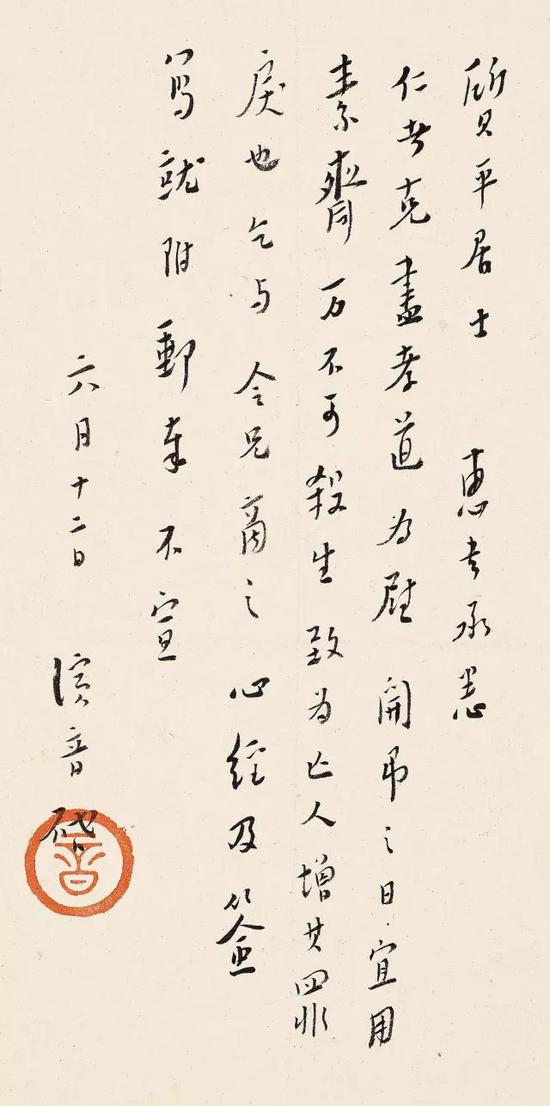 質平居士 惠書承悉
仁者克盡孝道為慰 開吊之日宜用
素齋万不可殺生致為亡人增其罪
戾也乞与 令兄商之 心經及簽
寫就附郵奉不宣
六月十二日 演音啓
音